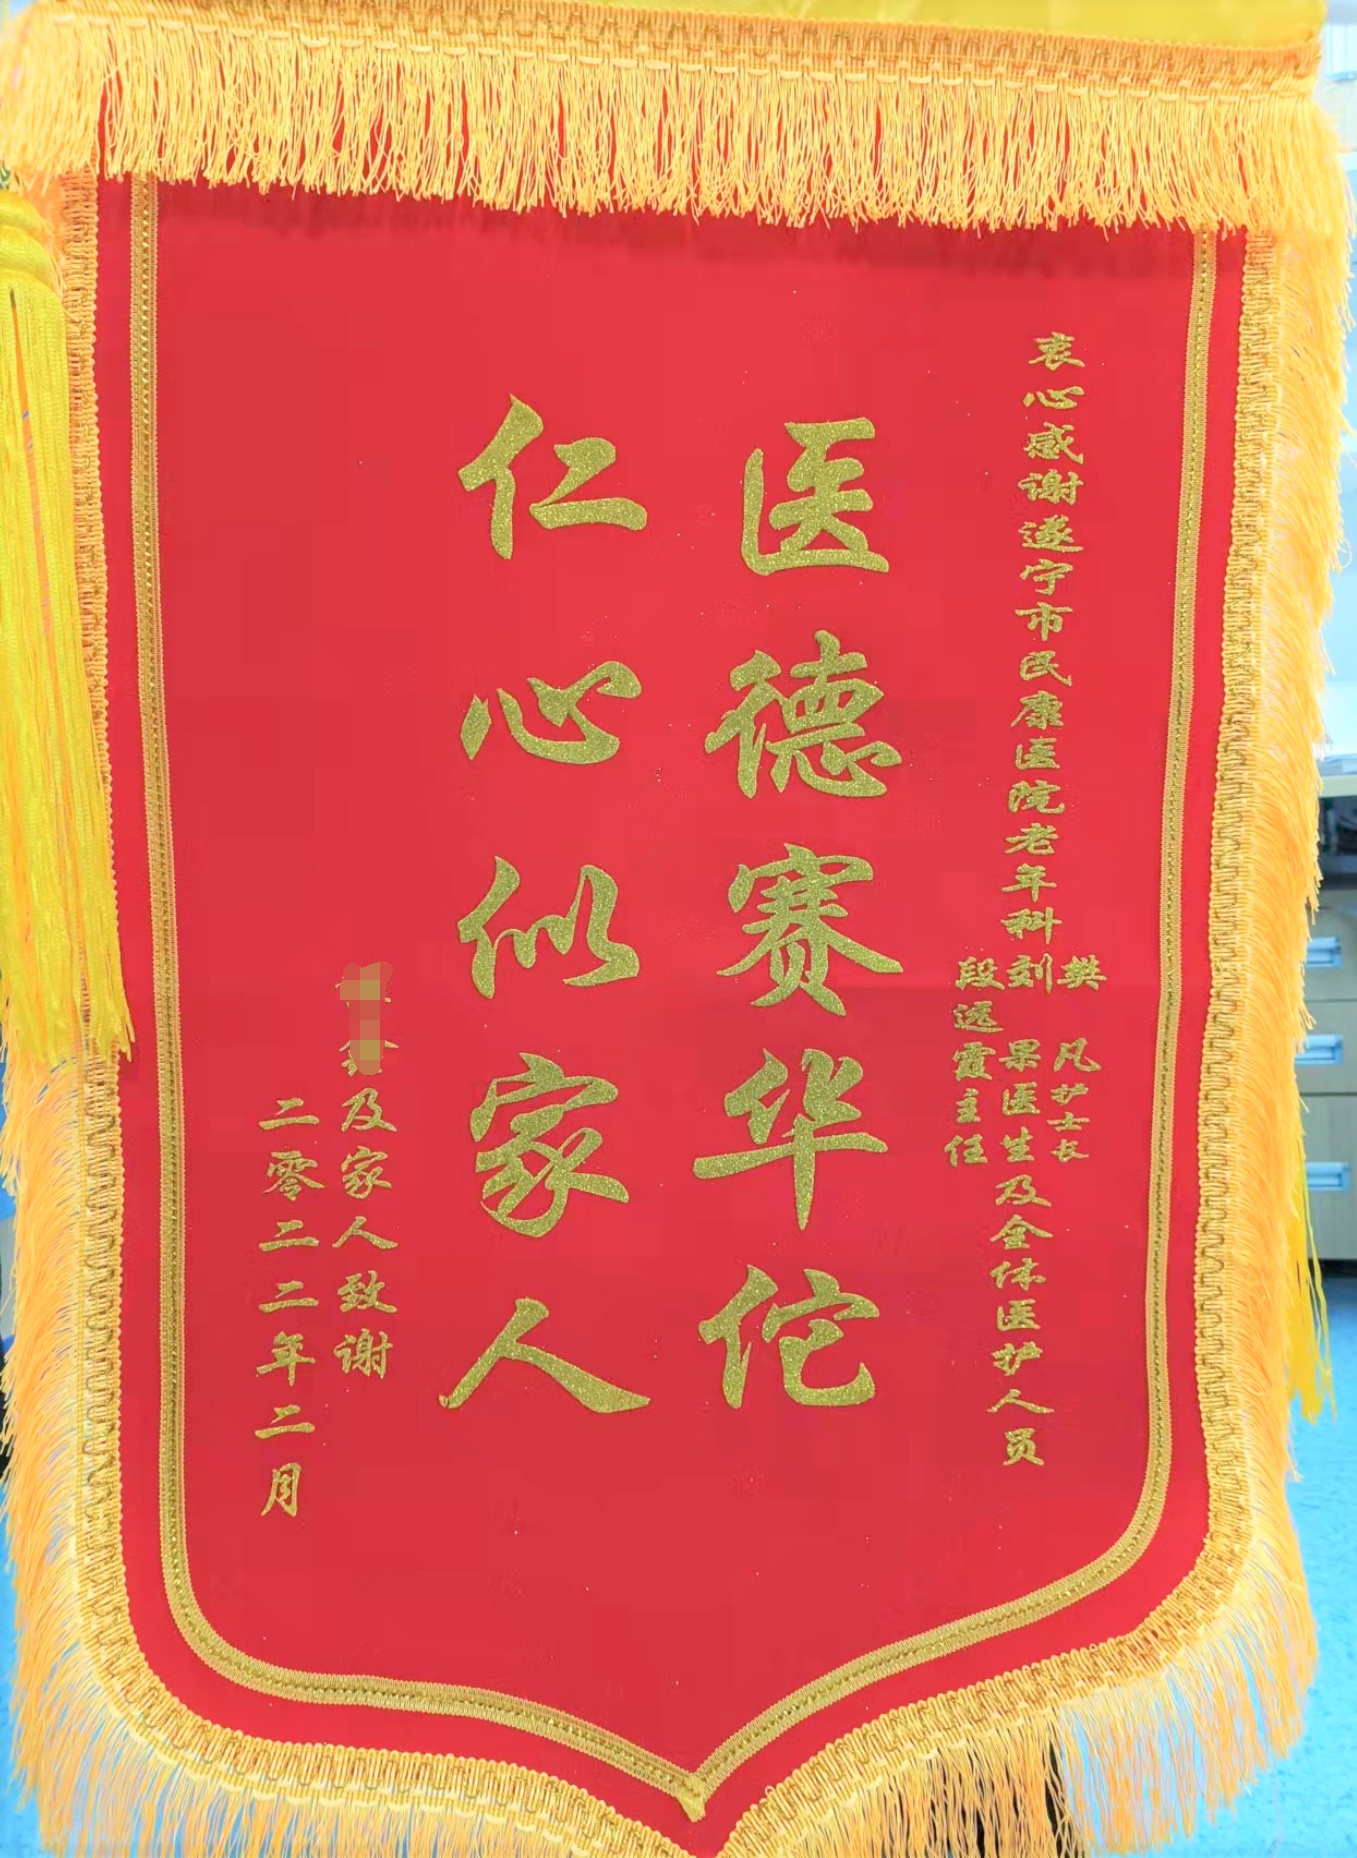 衷心感谢遂宁市民康医院老年科
樊凡护士长
刘果医生及全体医护人员
段远霞主任
医德赛华佗
仁心似家人
及家人致谢
二零二二年二月